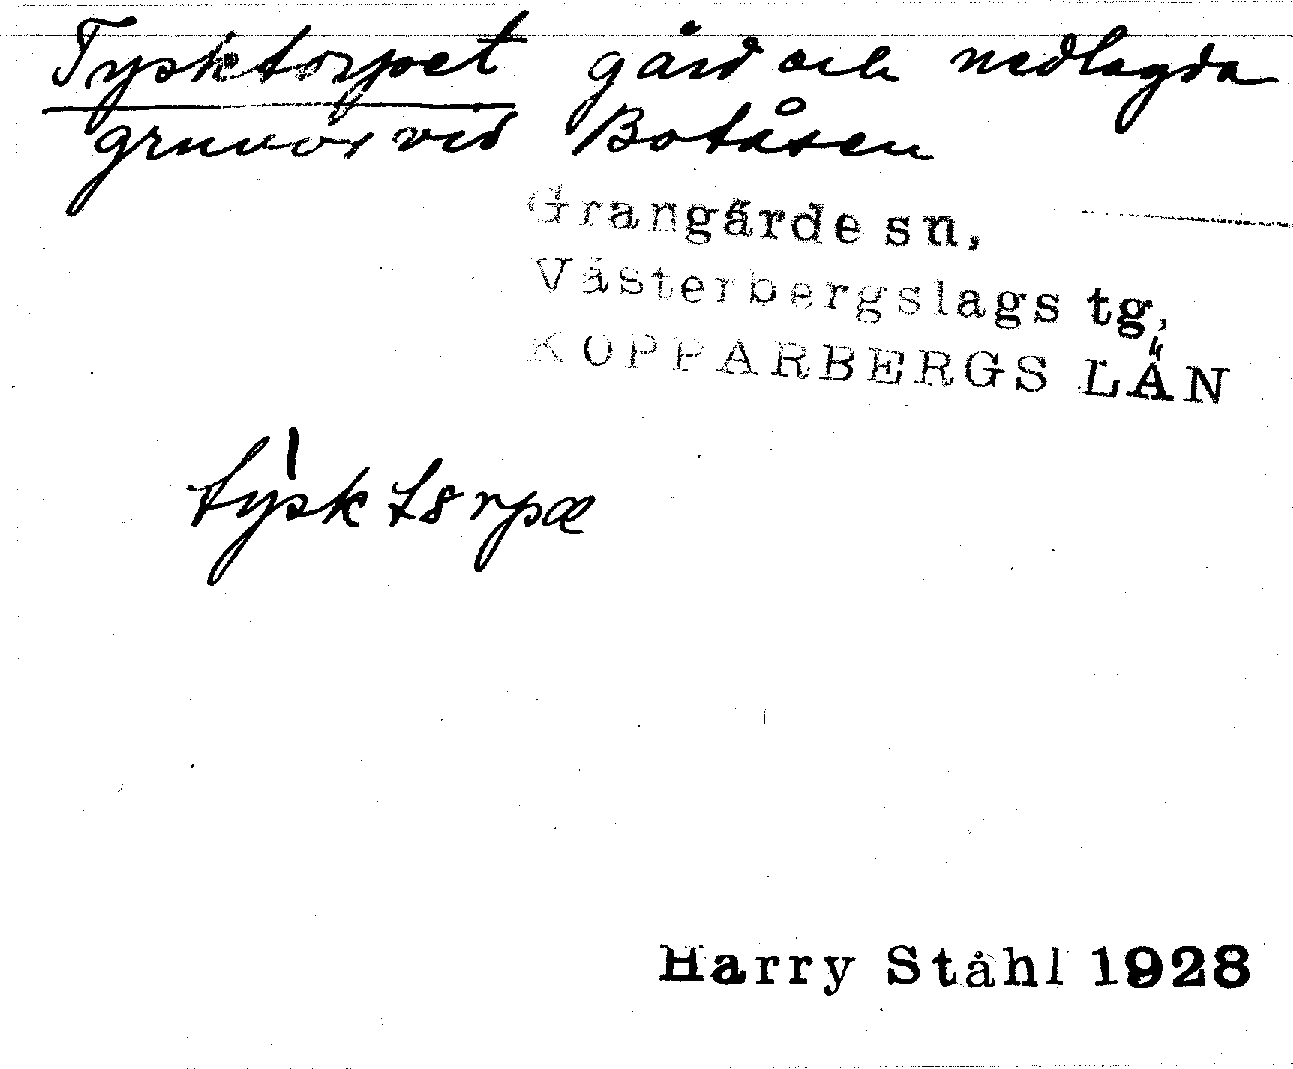 Tysktorpet gård och nedlagda
gruvor vid Botåsen
Grangärde sn,
Västerbergslags tg,
KOPPARBERGS LÄN
tỳsktɞrpæ
Harry Ståhl 1928